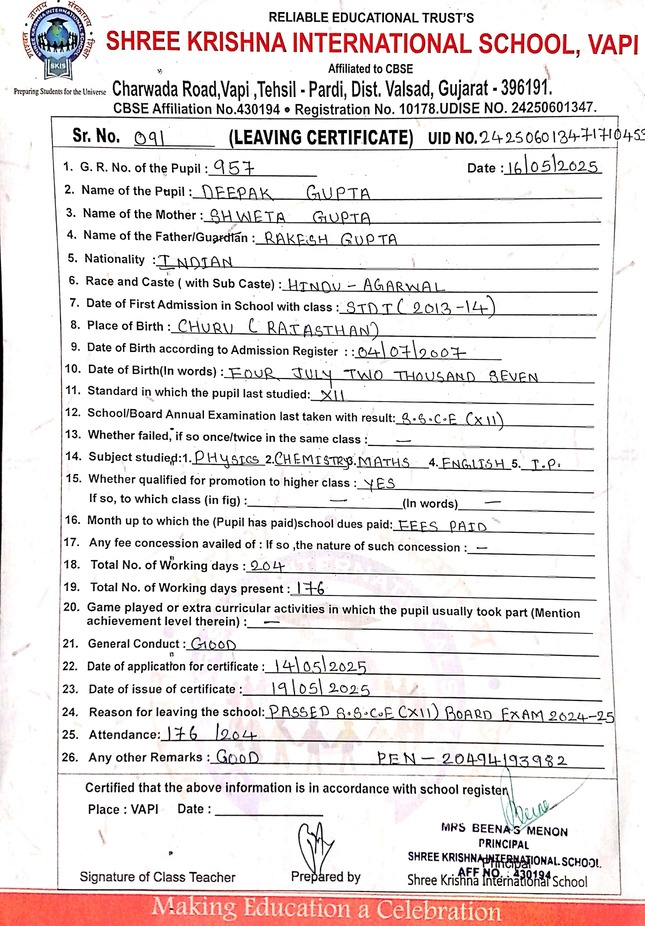 RELIABLE EDUCATIONAL TRUST'S
SHREE KRISHNA INTERNATIONAL SCHOOL, VAPI
Affiliated to CBSE
Preparing Students for the Universe
Charwada Road,Vapi ,Tehsil - Pardi, Dist. Valsad, Gujarat - 396191.
CBSE Affiliation No.430194 • Registration No. 10178.UDISE NO. 24250601347.
Sr. No. 091 (LEAVING CERTIFICATE) UID NO.
1. G. R. No. of the Pupil : 957 Date : 16/05/2025
2. Name of the Pupil : DEEPAK GUPTA
3. Name of the Mother : SHWETA GUPTA
4. Name of the Father/Guardian : RAKESH GUPTA
5. Nationality : INDIAN
6. Race and Caste ( with Sub Caste) : HINDU - AGARWAL
7. Date of First Admission in School with class : STD I ( 2013-14)
8. Place of Birth : CHURU ( RAJASTHAN)
9. Date of Birth according to Admission Register : : 04/07/2007
10. Date of Birth(In words) : FOUR JULY TWO THOUSAND SEVEN
11. Standard in which the pupil last studied: XII
12. School/Board Annual Examination last taken with result: S.S.C.E (XII)
13. Whether failed, if so once/twice in the same class : —
14. Subject studied:1. PHYSICS 2. CHEMISTRY 3. MATHS 4. ENGLISH 5. I.P.
15. Whether qualified for promotion to higher class : YES
If so, to which class (in fig) : — (In words) —
16. Month up to which the (Pupil has paid)school dues paid: FEES PAID
17. Any fee concession availed of : If so ,the nature of such concession : —
18. Total No. of Working days : 204
19. Total No. of Working days present : 176
20. Game played or extra curricular activities in which the pupil usually took part (Mention
achievement level therein) : —
21. General Conduct : GOOD
22. Date of application for certificate : 14/05/2025
23. Date of issue of certificate : 19/05/2025
24. Reason for leaving the school: PASSED S.S.C.E (XII) BOARD EXAM 2024-25
25. Attendance: 176 /204
26. Any other Remarks : GOOD PEN - 20494193982
Certified that the above information is in accordance with school register
Place : VAPI Date :
Beena
MRS BEENA S MENON
PRINCIPAL
SHREE KRISHNA INTERNATIONAL SCHOOL.
Principal
AFF NO. : 430194
Signature of Class Teacher Prepared by Shree Krishna International School
Making Education a Celebration